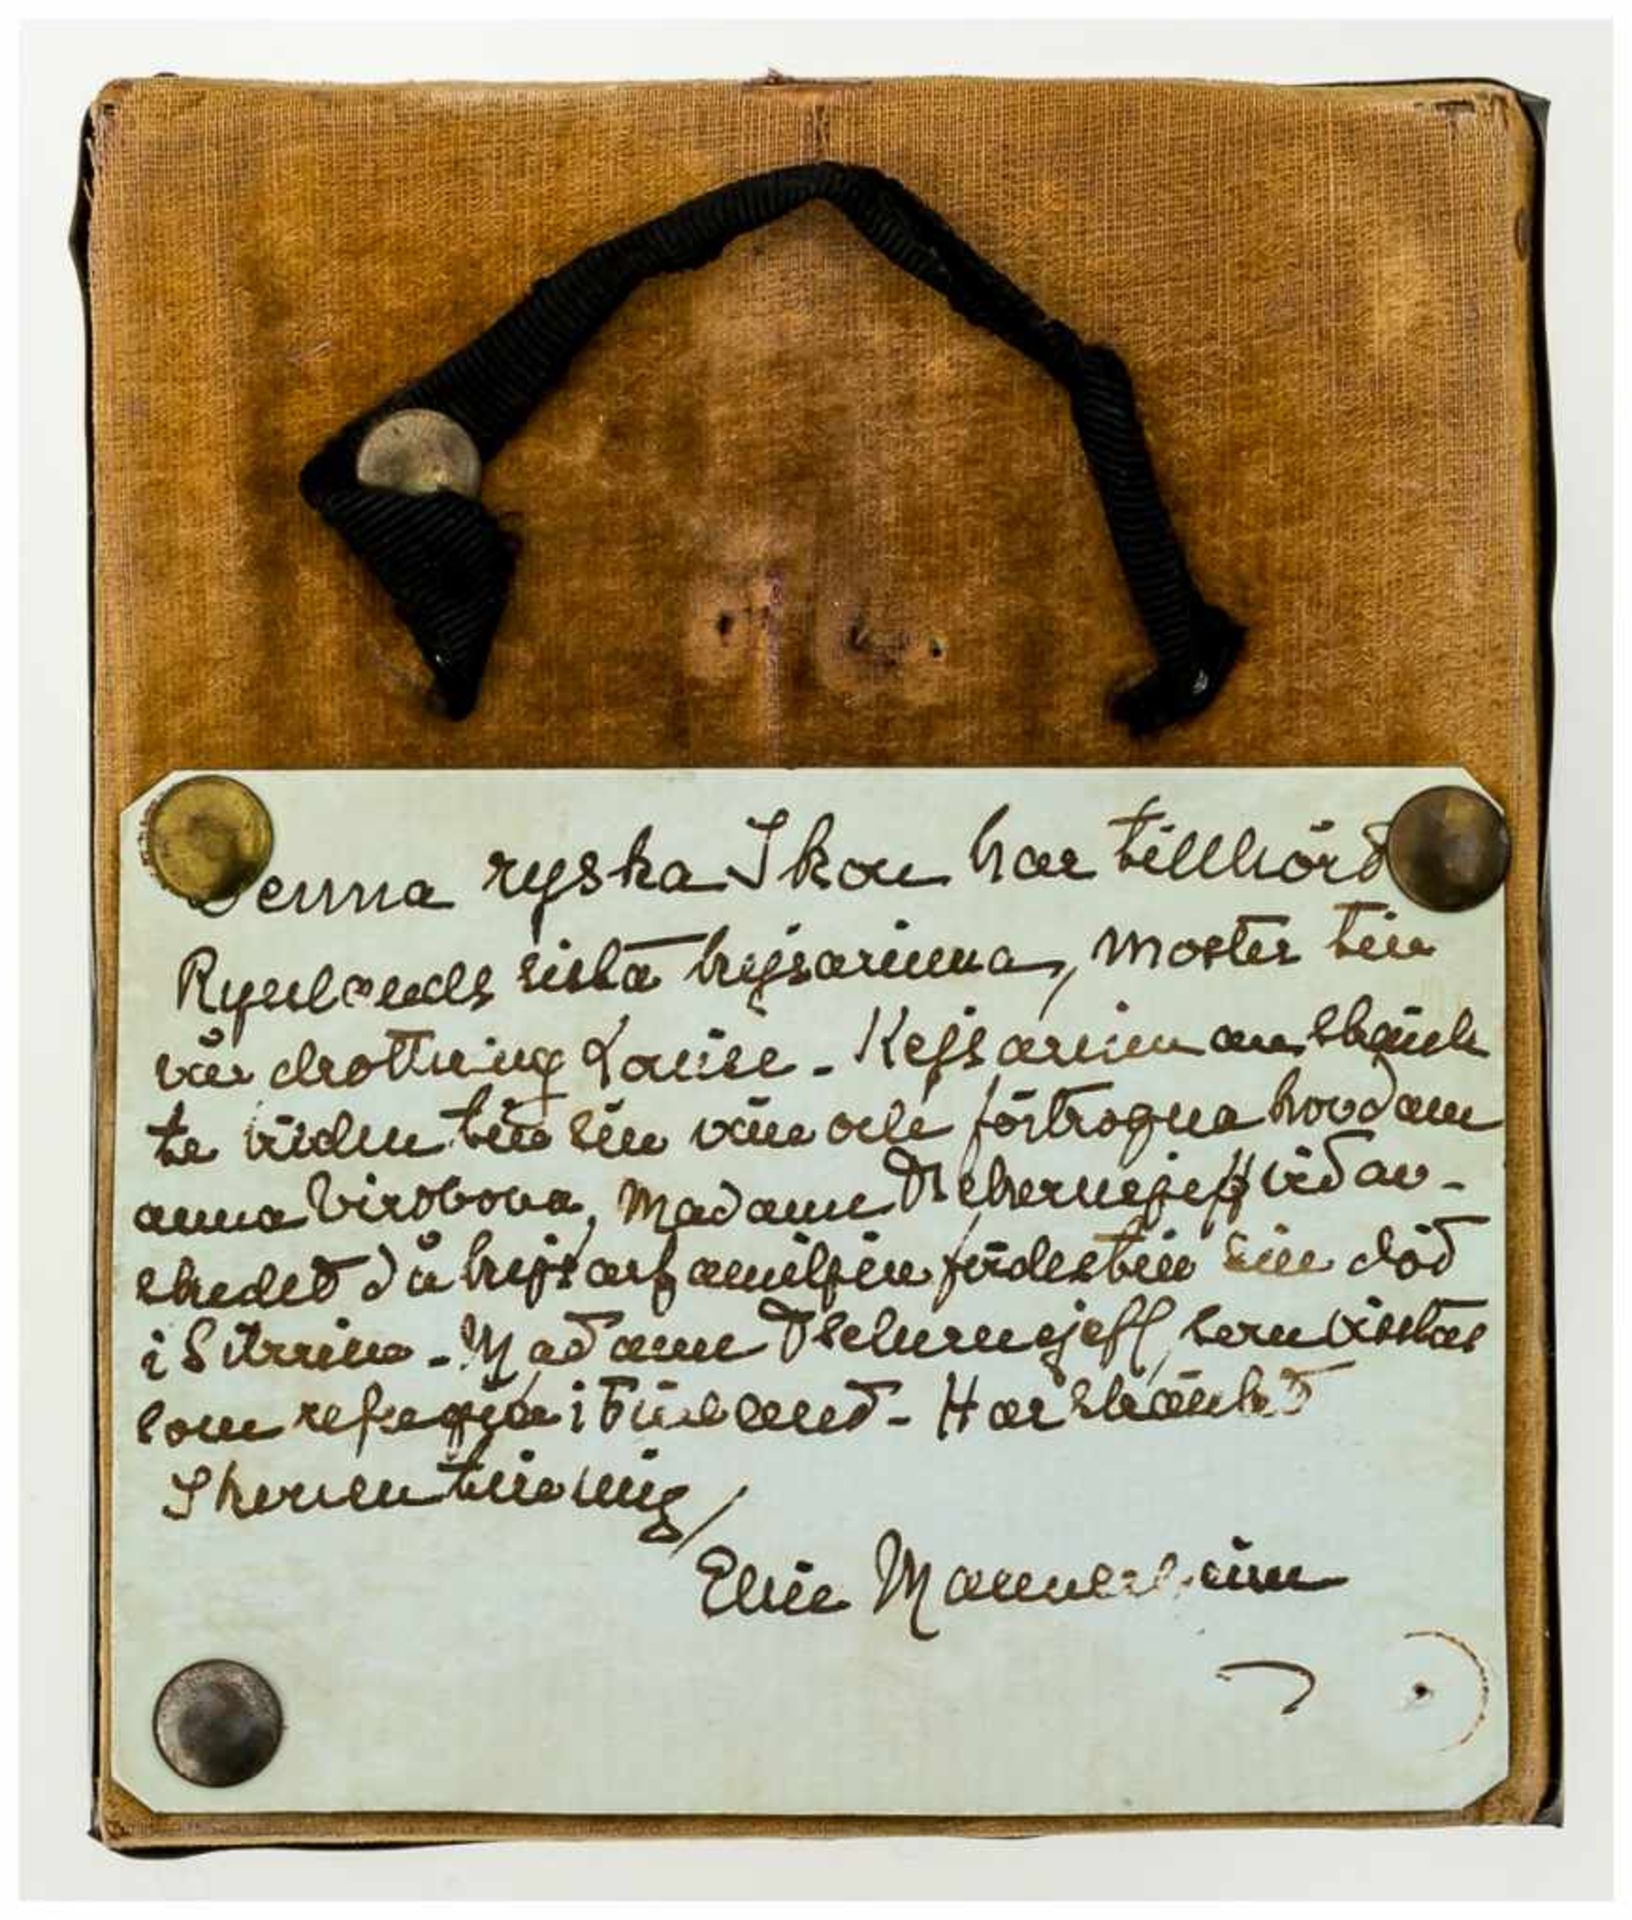 Denna ryska Ikon har tillhört
Rysslands sista kejsarinna, Moster till
vår drottning Louise - Kejsarinnan skänk
te tillbaka sin vän och förtrogna hovdam
anna Virobova, Madame Tschernejeff vid av-
skedet då kejsarfamiljen fördes till sin död
i Sibirien - Madame Tschernejeff, som vistas
som refugée i Finland - Har skänkt
Ikonen till mig/
Eline Mannerheim